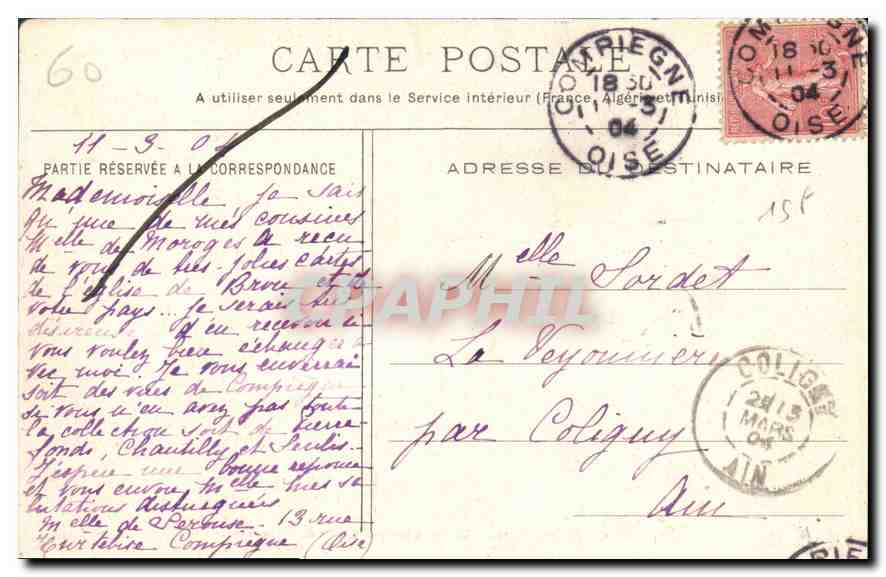 60
CARTE POSTALE
A utiliser seulement dans le Service intérieur (France, Algérie et Tunisie
COMPIEGNE
18 30
11 -3
04
OISE
COMPIEGNE
18 30
11 -3
04
OISE
11-3-04
PARTIE RÉSERVÉE A LA CORRESPONDANCE
ADRESSE DU DESTINATAIRE
15f
Mademoiselle je sais
qu'une de mes cousines
Melle de Moroges a reçu
de vous de très jolies cartes
de l'église de Brou et de
votre pays... je serais très
désireuse d'en recevoir si
vous voulez bien échanger a
vec moi. Je vous enverrai
soit des vues de Compiègne
si vous n'en avez pas toute
la collection soit de Pierre
fonds, Chantilly et Senlis.
J'espère une bonne réponse
et vous envoie Melle mes sa
lutations distinguées
Melle de Serouse - 13 rue
Hurtebise Compiègne (Oise)
CPAPHIL
Melle Sordet
La Teyonnière
par Coligny
Ain
COLIGNY
MARS
04
AIN